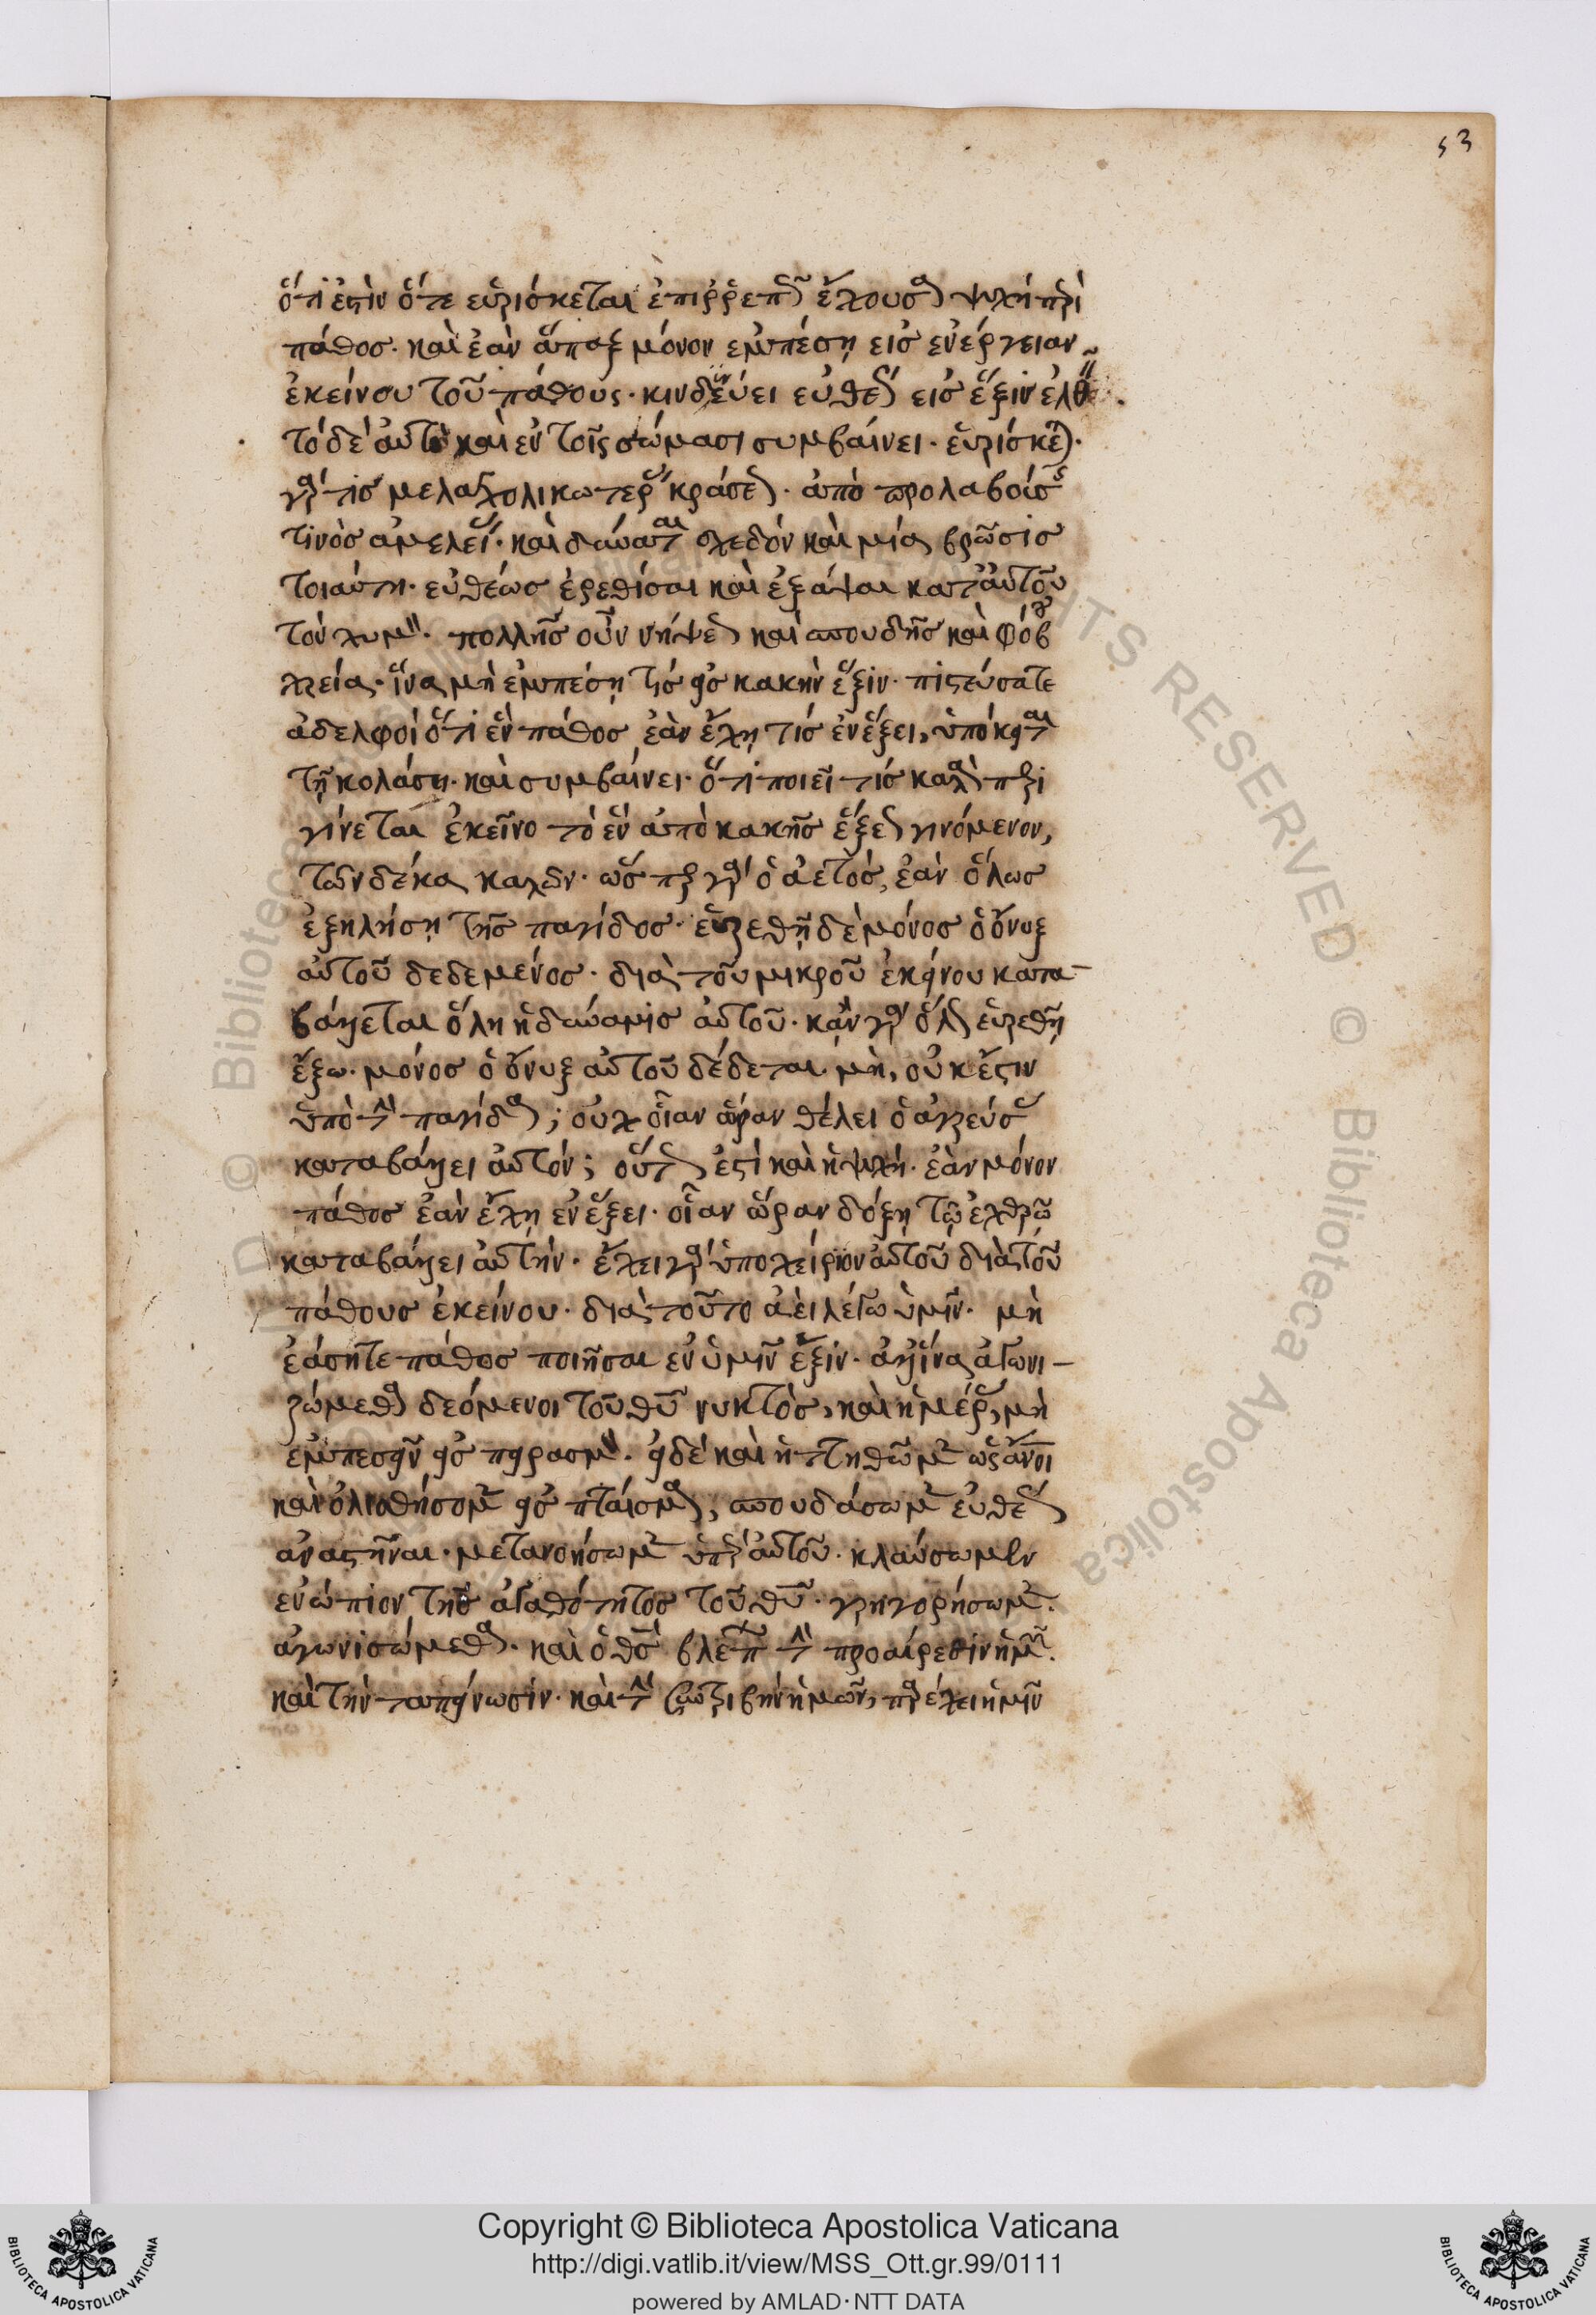 53
ὅτι ἐστὶν ὅτε εὑρίσκεται ἐπιρρεπῶς ἔχουσα ψυχὴ περὶ
πάθος. καὶ ἐὰν ἅπαξ μόνον ἐμπέσῃ εἰς ἐνέργειαν
ἐκείνου τοῦ πάθους. κινδυνεύει εὐθέως εἰς ἕξιν ἐλθεῖν.
τὸ δὲ αὐτὸ καὶ ἐν τοῖς σώμασι συμβαίνει. εὑρίσκεται.
γάρ τις μελαγχολικωτέρας κράσεως. ἀπὸ προλαβούσης
τινὸς ἀμελείας. καὶ δύναται σχεδὸν καὶ μία βρῶσις
τοιαύτη. εὐθέως ἐρεθίσαι καὶ ἐξάψαι κατ' αὐτοῦ
τὸν χυμόν. πολλῆς οὖν νήψεως καὶ σπουδῆς καὶ φόβου
χρεία. ἵνα μὴ ἐμπέσῃ τις εἰς κακὴν ἕξιν. πιστεύσατε
ἀδελφοί ὅτι ἓν πάθος ἐὰν ἔχῃ τις ἐν ἕξει, ὑπόκειται
τῇ κολάσει. καὶ συμβαίνει. ὅτι ποιεῖ τις καλὰ περὶ
γίνεται ἐκεῖνο τὸ ἓν ἀπὸ κακῆς ἕξεως γινόμενον,
τῶν δέκα καλῶν. ὥσπερ γὰρ ὁ ἀετός, ἐὰν ὅλως
ἐξειλήσῃ τῆς παγίδος. εὑρεθῇ δὲ μόνος ὁ ὄνυξ
αὐτοῦ δεδεμένος. διὰ τοῦ μικροῦ ἐκείνου κατα-
βάλλεται ὅλη ἡ δύναμις αὐτοῦ. κἂν γὰρ ὅλως εὑρεθῇ
ἔξω. μόνος ὁ ὄνυξ αὐτοῦ δέδεται. μὴ, οὐκ ἔστιν
ὑπὸ τὴν παγίδα; οὐχ οἵαν ὥραν θέλει ὁ ἀγρεύς
καταβάλλει αὐτόν; οὕτως ἐστὶ καὶ ἡ ψυχή. ἐὰν μόνον
πάθος ἐὰν ἔχῃ ἐν ἕξει. οἵαν ὥραν δόξῃ τῷ ἐχθρῷ
καταβάλλει αὐτήν. ἔχει γὰρ ὑποχείριον αὐτοῦ διὰ τοῦ
πάθους ἐκείνου. διὰ τοῦτο ἀεὶ λέγω ὑμῖν. μὴ
ἐάσητε πάθος ποιῆσαι ἐν ὑμῖν ἕξιν. ἀλλ' ἵνα ἀγωνι-
ζώμεθα δεόμενοι τοῦ θυ νυκτὸς, καὶ ἡμέρας, μὴ
ἐμπεσεῖν εἰς πειρασμόν. εἰ δὲ καὶ ἡττηθῶμεν ὡς ἄνοι
καὶ ὀλισθήσομεν εἰς πταίσμα, σπουδάσωμεν εὐθέως
ἀναστῆναι. μετανοήσωμεν ὑπὲρ αὐτοῦ. κλαύσωμεν
ἐνώπιον τῆς ἀγαθότητος τοῦ θυ. γρηγορήσωμεν.
ἀγωνισώμεθα. καὶ ὁ θς βλέπων τὴν προαίρεσιν ἡμῶν.
καὶ τὴν ταπείνωσιν. καὶ τὴν συντριβὴν ἡμῶν, παρέχει ἡμῖν
Copyright © Biblioteca Apostolica Vaticana
http://digi.vatlib.it/view/MSS_Ott.gr.99/0111
powered by AMLAD·NTT DATA